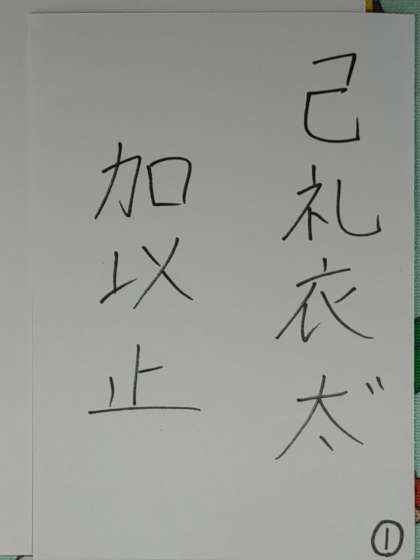 己礼衣太゛
加以止
①